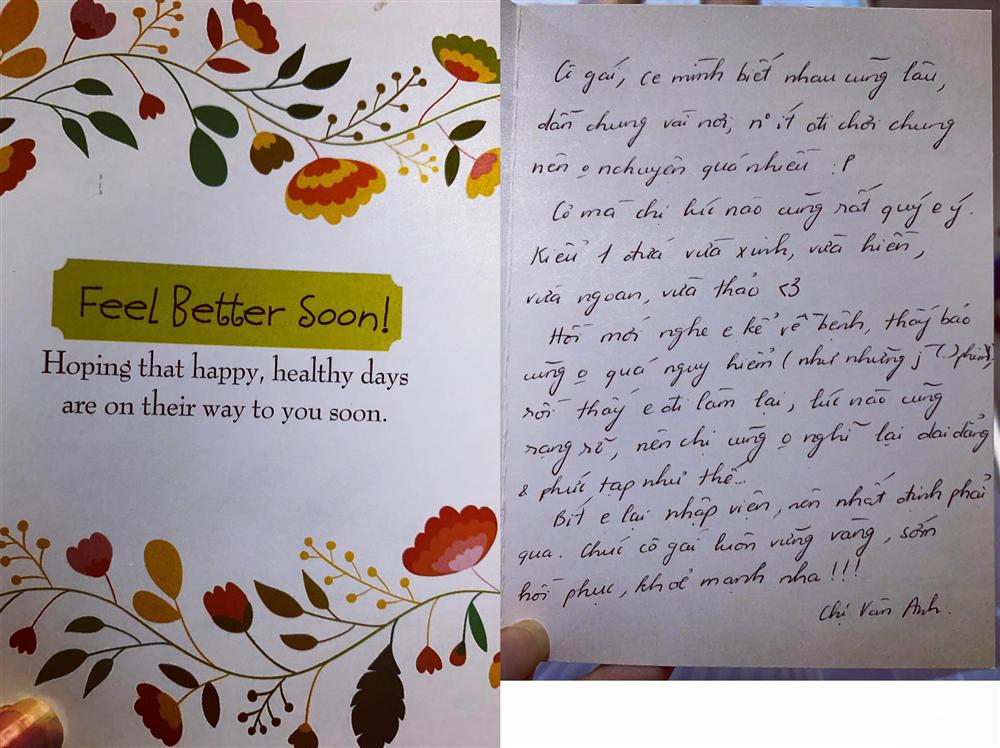 Feel Better Soon!
Hoping that happy, healthy days
are on their way to you soon.
Cô gái, ce mình biết nhau cũng lâu,
dẫn chung vài nơi, n ít đi chơi chung
nên o nchuyện quá nhiều :P
Cơ mà chị lúc nào cũng rất quý e ý.
Kiểu 1 đứa vừa xinh, vừa hiền,
vừa ngoan, vừa thảo <3
Hồi mới nghe e kể về bệnh, thấy bảo
cũng o quá nguy hiểm (như những j
rồi thấy e đi làm lại, lúc nào cũng
rạng rỡ, nên chị cũng o nghĩ lại dai dẳng
& phức tạp như thế...
Biết e lại nhập viện, nên nhất định phải
qua. Chúc cô gái luôn vững vàng, sớm
hồi phục, khoẻ mạnh nha!!!
Chị Vân Anh.